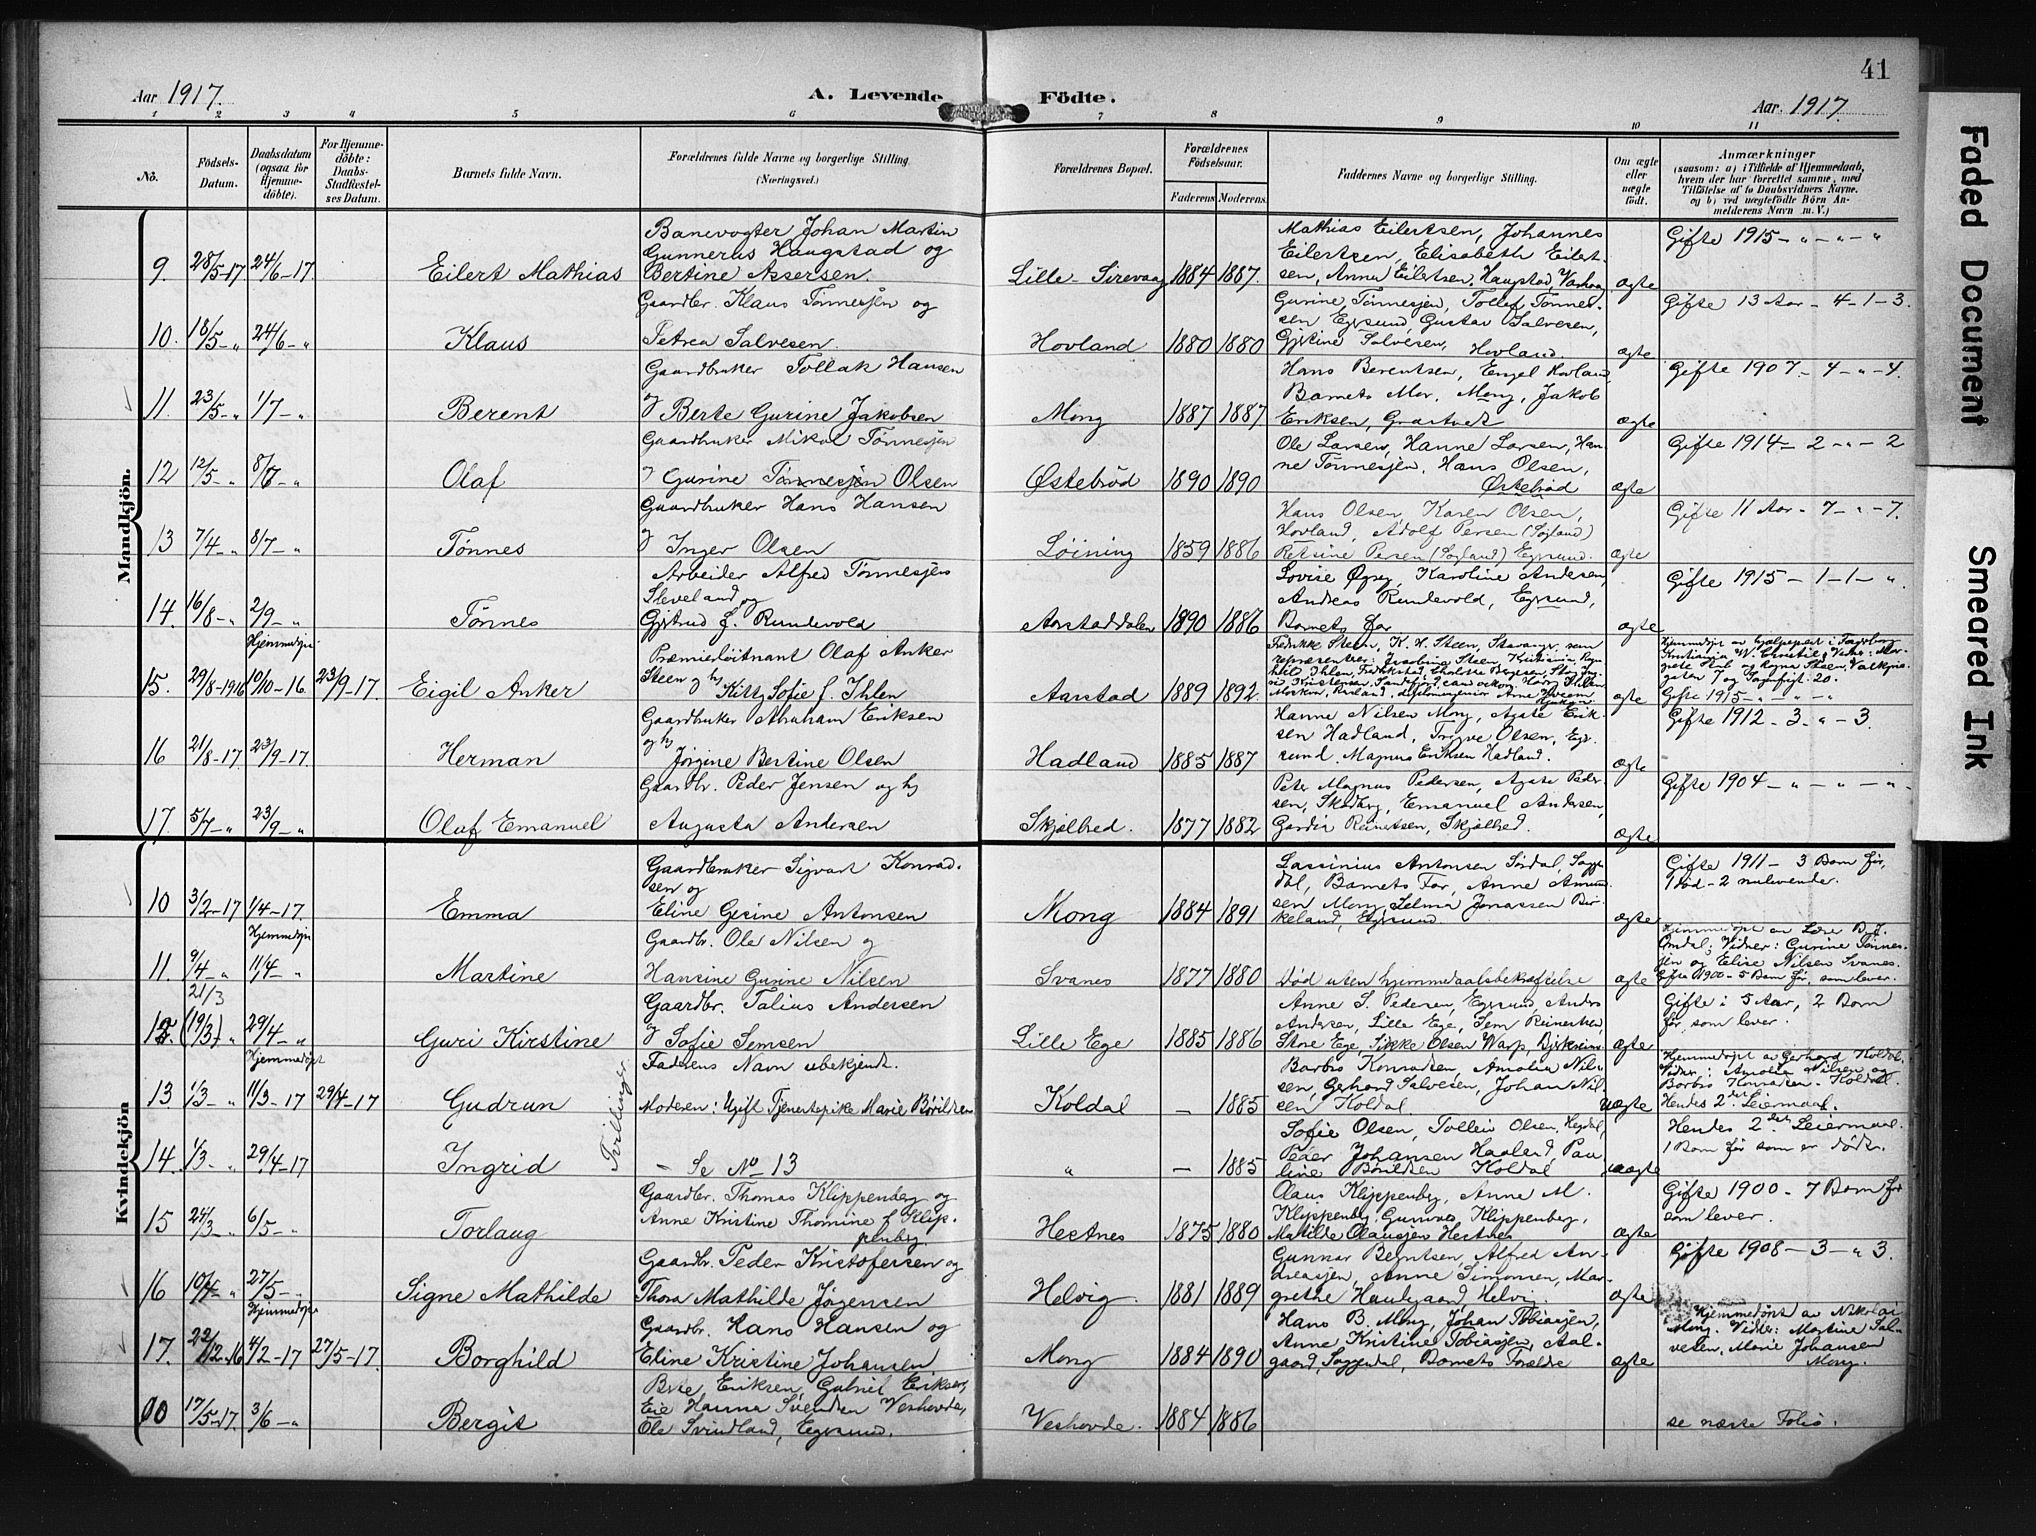 41
Aar 1917.
A. Levende
Födte.
Aar. 1917.
1 2 3 4 5 6 7 8 9 10 11
No.
Födsels-Datum.
Daabsdatum (ogsaa for Hjemme-døbte).
For Hjemme-døbte: Daabs-Stadfæstel-ses Datum.
Barnets fulde Navn.
Forældrenes fulde Navne og borgerlige Stilling. (Næringsvei.)
Forældrenes Bopæl.
Forældrenes Födselsaar.
Faderens Moderens
Faddernes Navne og borgerlige Stilling.
Om ægte eller uægte födt.
Anmærkninger
(saasom: a) i Tilfælde af Hjemmedaab, hvem der har forrettet samme, med Tilföielse af to Daabsvidners Navne. og b) ved uægtefödte Börn An-melderens Navn m. V.)
Mandkjön.
9 28/5-17 24/6-17. Eilert Mathias
Banevogter Johan Martin
Gunnerus Haugstad og
Bertine Assersen.
Lille-Sirevaag 1884 1887.
Mathias Eilertsen, Johannes
Eilertsen, Elisabeth Eilert-
sen, Anna Eilertsen, Haugstad, Varhaug
ægte
Gifte 1915 - " - " - "
10. 18/5 - " 24/6 - " Klaus
Gaardbr. Klaus Tønnesjen og
Petrea Salvesen.
Hovland 1880 1880
Gurine Tønnesjen, Tollef Tønnes-
sen Egrsund, Gustav Salvesen,
Gjertine Salvesen, Hovland.
ægte
Gifte 13 Aar - 4 - 1 - 3.
11. 23/5 - " 1/7 - " Berent
Gaardbruker Tollak Hansen
og Berte Gurine Jakobsen
Mong 1887 1887
Hans Berentsen, Engel Hovland,
Barnets Mor, Mong, Jakob
Eriksen, Grastveit
ægte
Gifte 1907 - 4 - " - 4.
12 12/5 - " 8/7 - " Olaf
Gaardbruker Mikal Tønnesjen
og Gurine Tønnesjen Olsen
Østebrød 1890 1890
Ole Larsen, Hanne Larsen, Han-
ne Tønnesjen, Hans Olsen,
Østebrød
ægte
Gifte 1914 - 2 - " - 2
13 7/4 - " 8/7 - " Tønnes
Gaardbruker Hans Hansen
og Inger Olsen
Løining 1859 1886
Hans Olsen, Karen Olsen,
Hovland, Adolf Persen (Sogland)
Retsine Persen (Sogland) Egrsund.
ægte
Gifte 11 Aar - 7 - " - 7.
14. 16/8 - " 2/9 - " Tønnes
Arbeider Alfred Tønnesjens
Sleveland og
Gjertrud f. Rundevold
Aarstaddalen 1890 1886
Lovise Øgrey, Karoline Andersen,
Andreas Rundevold, Egrsund,
Barnets Far
ægte
Gifte 1915 - 1 - 1 - ".
Hjemmedøpt
15. 29/8-1916 10/10-16. 23/9-17. Eigil Anker
Præmierløitnant Olaf Anker
Steen og h Kitty Sofie f. Ihlen
Aarstad 1889 1892.
Fredrikke Steen, K. H. Steen, Stavanger som
ægte
Gifte 1915 - " - " - "
16 21/8-17. 23/9-17. Herman
Gaardbruker Abraham Eriksen
og h
Jørgine Bertine Olsen
Hadland 1885 1887
Hanne Nilsen Mong, Agate Erik-
sen Hadland, Trygve Olsen, Egr-
sund. Magnus Eriksen Hadland.
ægte
Gifte 1912 - 3 - " - 3.
17. 5/7 - " 23/9 - " Olaf Emanuel
Gaardbr. Peder Jensen og h
Augusta Andersen
Skjølhed. 1877 1882
Peter Magnus Pedersen, Agate Peder-
sen, Skadberg, Emanuel Andersen,
Gardir Reinertsen, Skjølhed.
ægte
Gifte 1904 - " - " - " -.
Kvindekjön
10 3/2-17 1/4-17. Emma
Gaardbruker Sigvart Konrad-
sen og
Eline Gesine Antonsen
Mong 1884 1891
Lassinius Antonsen Sirdal, Sogn-
dal, Barnets Far, Anne Amund-
sen Mong, Selma Jonassen Bir-
keland, Egrsund
ægte
Gifte 1911 - 3 Barn før,
1 død - 2 nulevende.
Hjemmedøpt
11. 9/4 - " 11/4 - " Martine
Gaardbr. Ole Nilsen og
Hansine Gurine Nilsen
Svanes 1877 1880
Død uten hjemmedaabsbekræftelse
ægte
Hjemmedøpt av Lærer B. J.
Omdal; Vidner: Gurine Tønnes-
sjen og Elise Nilsen Svanes.
Gifte 1900 - 5 Barn før, som lever.
21/3
12. (19/3) " 29/4 - " Guri Kirstine
Gaardbr. Talius Andersen
og Sofie Semsen
Lille Ege 1885 1886
Anne S. Pedersen, Egrsund, Andrs
Andersen, Lille Ege, Sem Reinertsen,
Store Ege Sikke Olsen Warp, Bjerkreim.
ægte
Gifte i 5 Aar, 2 Barn
før, som lever.
Hjemmedøpt
13. 1/3 - " 11/3-17 29/4-17 Gudrun
Tvillinger
Faderens Navn ubekjendt.
Moderen: Ugift Tjenestepike Marie Børildsen
Koldal - 1885
Barbro Konradsen, Amalia Nil-
sen, Gerhard Salvesen, Johan Nil-
sen, Koldal
uægte
Hjemmedøpt av Gerhard Koldal.
Vidner: Amalia Nilsen og
Barbro Konradsen Koldal.
Hendes 2det Leiermaal.
14. 1/3 - " 29/4-17 Ingrid
- Se No 13
" - 1885
Sofie Olsen, Tolleiv Olsen, Hegdal,
Peder Johansen Haaland, Pau-
line Børildsen Koldal
uægte
Hendes 2det Leiermaal.
1 Barn før som er dødt.
15 24/3 - " 6/5 - " Torlaug
Gaardbr. Thomas Klippenberg og
Anne Kristine Thomine f. Klip-
penberg.
Hestnes 1875 1880
Olaus Klippenberg, Anne M.
Klippenberg, Gunvor Klippenberg,
Matilde Olausjens Hestnes
ægte
Gifte 1900 - 7 Barn før
som lever.
16 10/4 - " 27/5 - " Signe Mathilde
Gaardbr. Peder Kristofersen og
Thora Mathilde Jørgensen
Helvig. 1881 1889
Gunnar Berntsen, Alfred An-
dreasjen, Anne Simonsen, Mar-
grethe Haulegaard, Helvig.
ægte
Gifte 1908 - 3 - " 3.
Hjemmedøpt
17. 22/12-16 4/2-17 27/5-17. Borghild
Gaardbr. Hans Hansen og
Eline Kristine Johansen
Mong 1884 1890
Hans B. Mong, Johan Tobiasjen,
Anne Kristine Tobiasjen, Aal-
gaard, Soggendal, Barnets Forældre
ægte
Hjemmedøpt av Nikolai
Mong. Vidner: Martine Sal-
vesen, Marie Johansen
Mong.
00 17/5-17. 3/6 - " Bergit
Brte Eriksen, Gabriel Eriksen,
Eie Hanna Svendsen Veshovde,
Ole Svindland, Egrsund.
Veshovde. 1884 1886
se næste Folio.
Faded Document
Smeared Ink